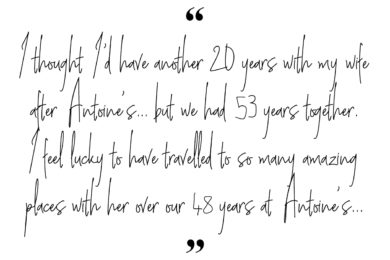 “
I thought I'd have another 20 years with my wife
after Antoine's... but we had 53 years together.
I feel lucky to have travelled to so many amazing
places with her over our 48 years at Antoine's...
”